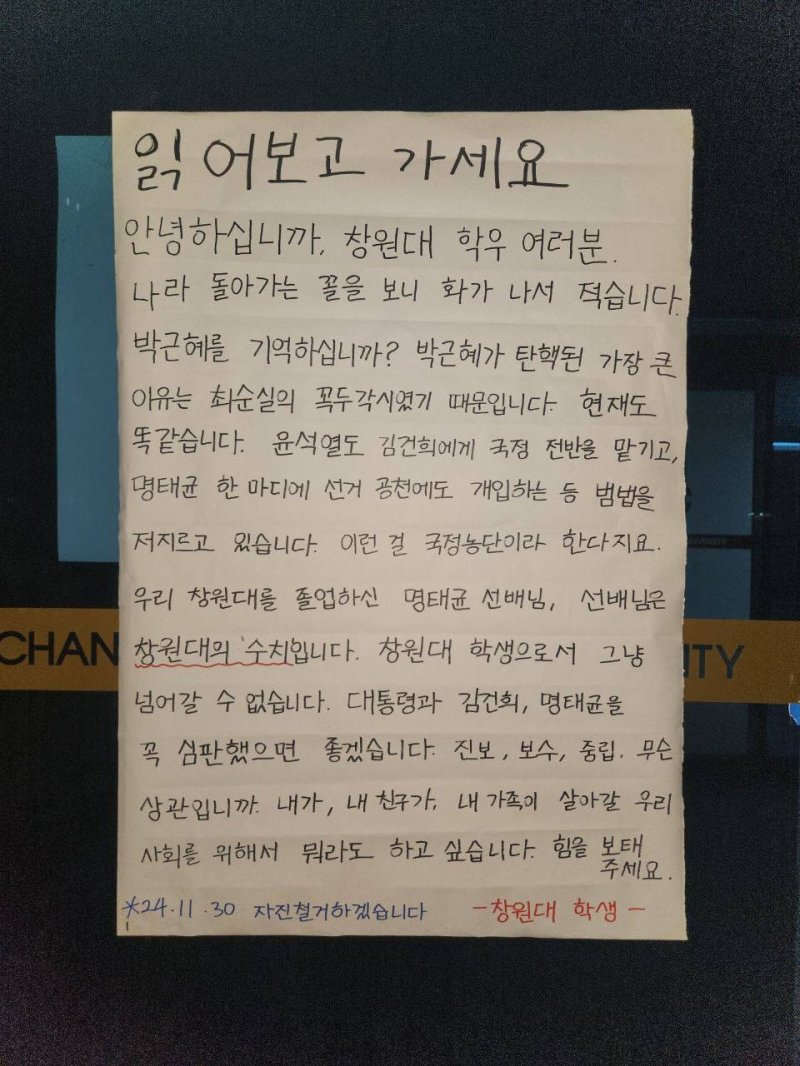 읽어보고 가세요
안녕하십니까, 창원대 학우 여러분.
나라 돌아가는 꼴을 보니 화가 나서 적습니다.
박근혜를 기억하십니까? 박근혜가 탄핵된 가장 큰
이유는 최순실의 꼭두각시였기 때문입니다. 현재도
똑같습니다. 윤석열도 김건희에게 국정 전반을 맡기고,
명태균 한 마디에 선거 공천에도 개입하는 등 범법을
저지르고 있습니다. 이런 걸 국정농단이라 한다지요.
우리 창원대를 졸업하신 명태균 선배님, 선배님은
창원대의 '수치'입니다. 창원대 학생으로서 그냥
넘어갈 수 없습니다. 대통령과 김건희, 명태균을
꼭 심판했으면 좋겠습니다. 진보, 보수, 중립. 무슨
상관입니까. 내가, 내 친구가, 내 가족이 살아갈 우리
사회를 위해서 뭐라도 하고 싶습니다. 힘을 보태
주세요.
*24.11.30 자진철거하겠습니다 -창원대 학생-
CHAN ITY